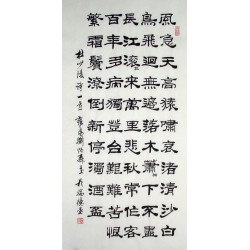 風急天高猿嘯哀渚清沙白
鳥飛迴無邊落木蕭〻下不盡
長江滾〻來萬里悲秋常作客
百年多病獨登台艱難苦恨
繁霜鬢潦倒新停濁酒盃
杜少陵詩一首